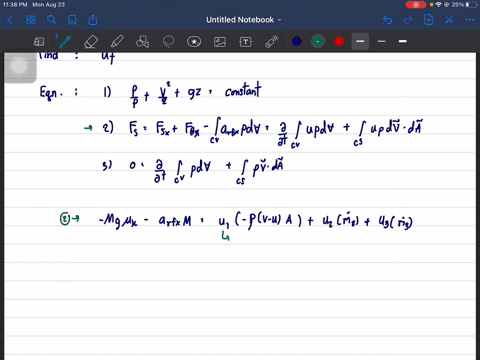 11:38 PM Mon Aug 23
25%
Untitled Notebook
Find : Uf
Eqn. : 1) P/ρ + V²/2 + gz = constant
→ 2) Fs = Fsx + FBx - ∫cv arfx ρd∀ = ∂/∂t ∫cv uρd∀ + ∫cs uρV⃗·dA⃗
3) 0 = ∂/∂t ∫cv ρd∀ + ∫cs ρV⃗·dA⃗
② → -Mgμk - arfx M = u₁ (-ρ(v-u) A) + u₂ (ṁ₂) + u₃ (ṁ₃)
↳